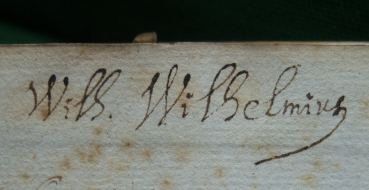 Wilh. Wilhelmius